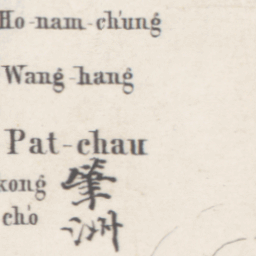 Ho-nam-ch'ung
Wang-hang
Pat-chau
kong
ch'o
筆洲